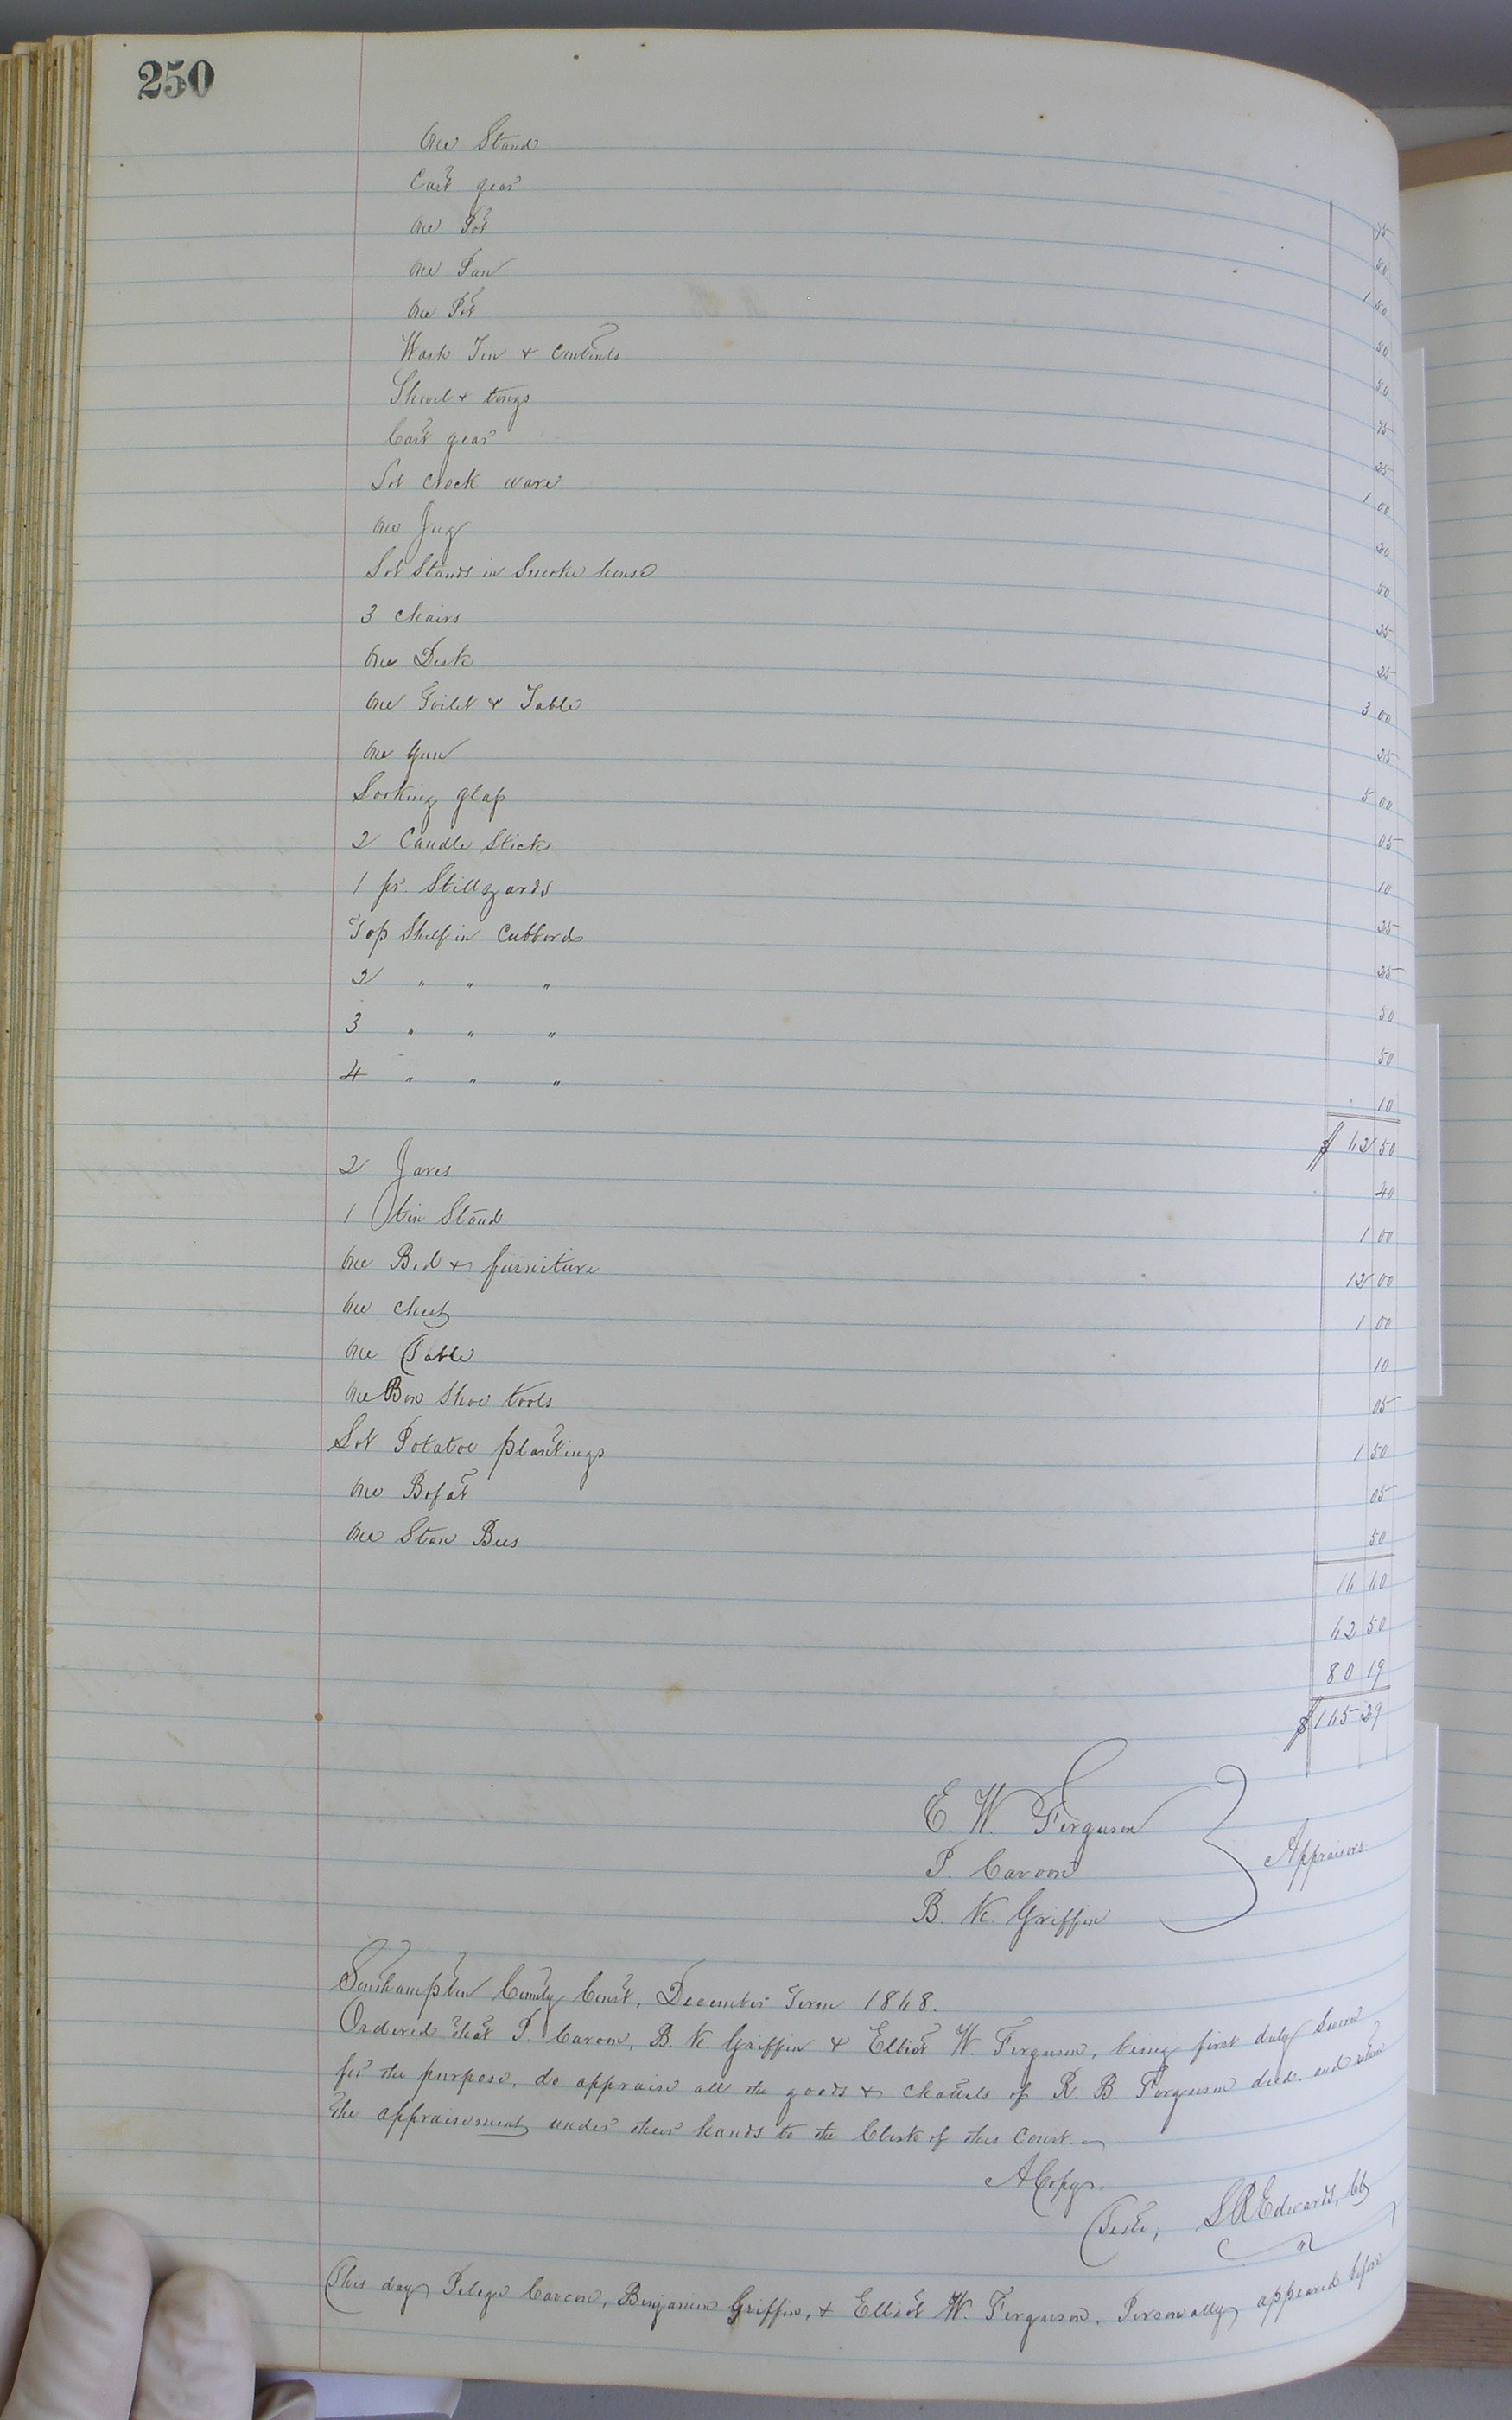 250
One Stand 75
Cart gear 50
One Pot 1 50
One Pan 50
One Pot 50
Wash Tin & Contents 75
Shovel & tongs 25
Cart gear 1 00
Lot Crock ware 20
One Jug 50
Lot Stands in Smoke house 25
3 Chairs 25
One Desk 3 00
One Toilet & Table 25
One Gun 5 00
Looking glass 05
2 Candle Sticks 10
1 pr. Stillyards 25
Top Shelf in Cubbord 25
2 " " " 50
3 " " " 50
4 " " " 10
$ 62 50
2 Jares 40
1 tin Stand 1 00
One Bed & furniture 12 00
One Chest 1 00
One Table 10
One Box Shoe tools 05
Lot Potatoe plantings 1 50
One Bofat 05
One Stan Bees 50
16 60
62 50
80 19
$ 165 29
E. W. Ferguson
P. Caroon } Appraisors.
B. K. Griffin
Southampton County Court, December Term 1868.
Ordered that P. Caroon, B. K. Griffin & Elliot W. Ferguson, being first duly Sworn
for the purpose, do appraise all the goods & Chattels of R. B. Ferguson decd. and return
the appraisement under their hands to the Clerk of this Court.
A Copy.
Teste, L R Edwards, Clk
This day Pelege Caroon, Benjamin Griffin, & Elliot W. Ferguson, Personally appeared before